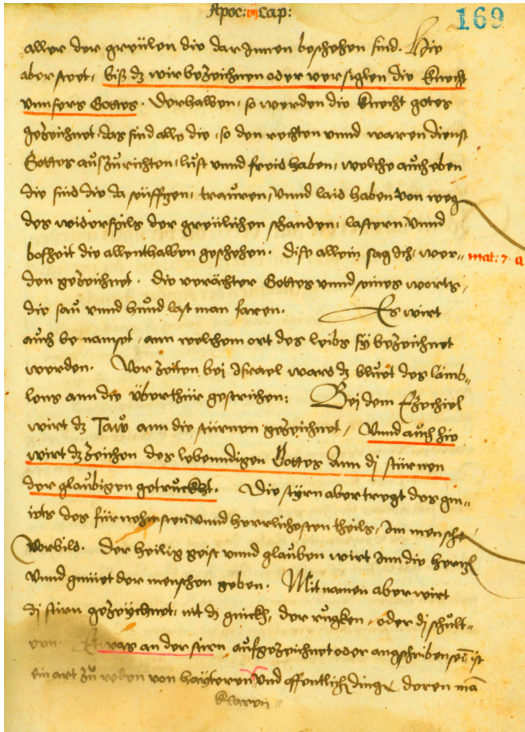 Apoc: 7 Cap:
169
aller der greülen die dar Innen beschehen sind. Hie
aber steet, biß dz wir bezeichnen oder versiglen die knecht
vnnsers Gottes. Derhalben, so werden die knecht gotes
gezeichnet, das sind alle die, so den rechten vnnd waren dienst
Gottes außzurichten, lust vnnd freid haben, welche auch eben
die sind die da seüffzgen, trauren, vnnd laid haben von weg
des widerspils der greülichen schanden, lastern, vnnd
boßheit die allenthalben geschehen. Dise allein sag ich, wer-
mat: 7. a
den gezeichnet. die verächter Gottes vnnd seines worts,
die sau vnnd hund last man faren. Es wirt
auch benampt, ann welchem ort des leibs sÿ bezeichnet
werden. Vor zeiten bei Israel ward dz bluet des lämb-
lens ann die überthür gestrichen: Bei dem Ezechiel
wirt dz Tauv ann die stürnen gezeichnet, Vnnd auch hie
wirt dz zeichen des lebenndigen Gottes Ann di stürnen
der glaubigen getruckht. Die stÿrn aber tregt des gm-
iets des fürnehmsten vnnd herrlichesten theils, Im mensche
Vorbild. Der heilig geist vnnd glauben wirt Inn die hertz
vnnd gmüet der menschen geben. Mit namen aber wirt
di stirn gezeÿchnet, nit dz gnückh, der ruggen, oder di schult-
ern. Etwas an der stirn aufgezeichnet oder angschriben sei, ist
ein art zu reden von haÿteren vnd offentlich dinge, deren mā
klaren